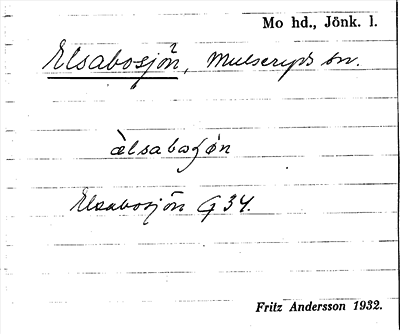 Mo hd., Jönk. l.
Elsabosjön, Mulseryds sn.
Elsabosjön G 34.
Fritz Andersson 1932.